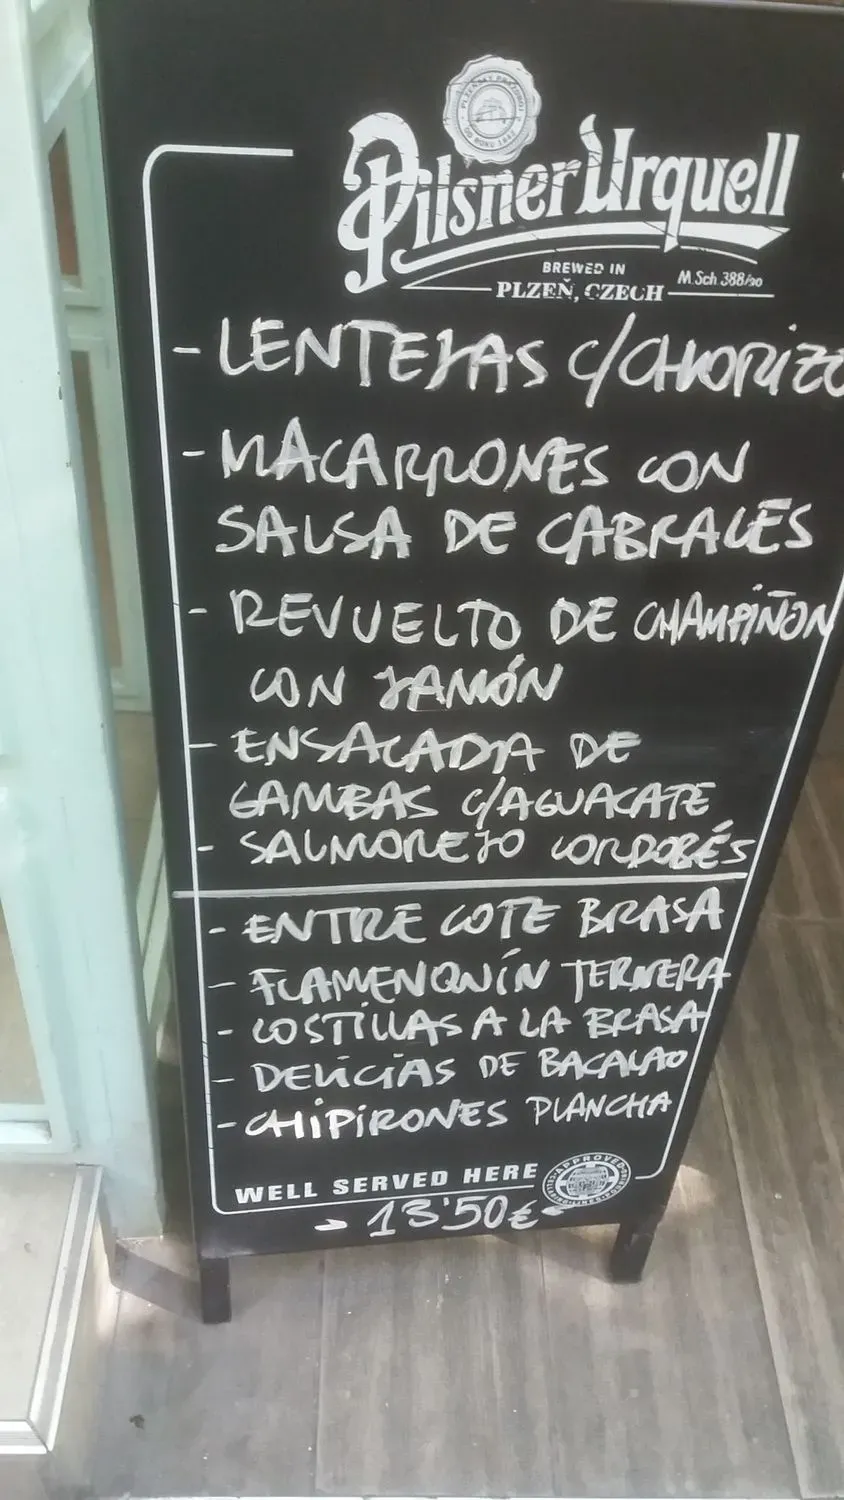 Pilsner Urquell
BREWED IN
PLZEŇ, CZECH
M.Sch 388/90
- LENTEJAS C/CHORIZO
- MACARRONES CON
SALSA DE CABRALES
- REVUELTO DE CHAMPIÑON
CON JAMÓN
- ENSALADA DE
GAMBAS C/AGUACATE
- SALMOREJO CORDOBÉS
- ENTRE COTE BRASA
- FLAMENQUÍN TERNERA
- COSTILLAS A LA BRASA
- DELICIAS DE BACALAO
- CHIPIRONES PLANCHA
WELL SERVED HERE
APPROVED
- 13'50€ -